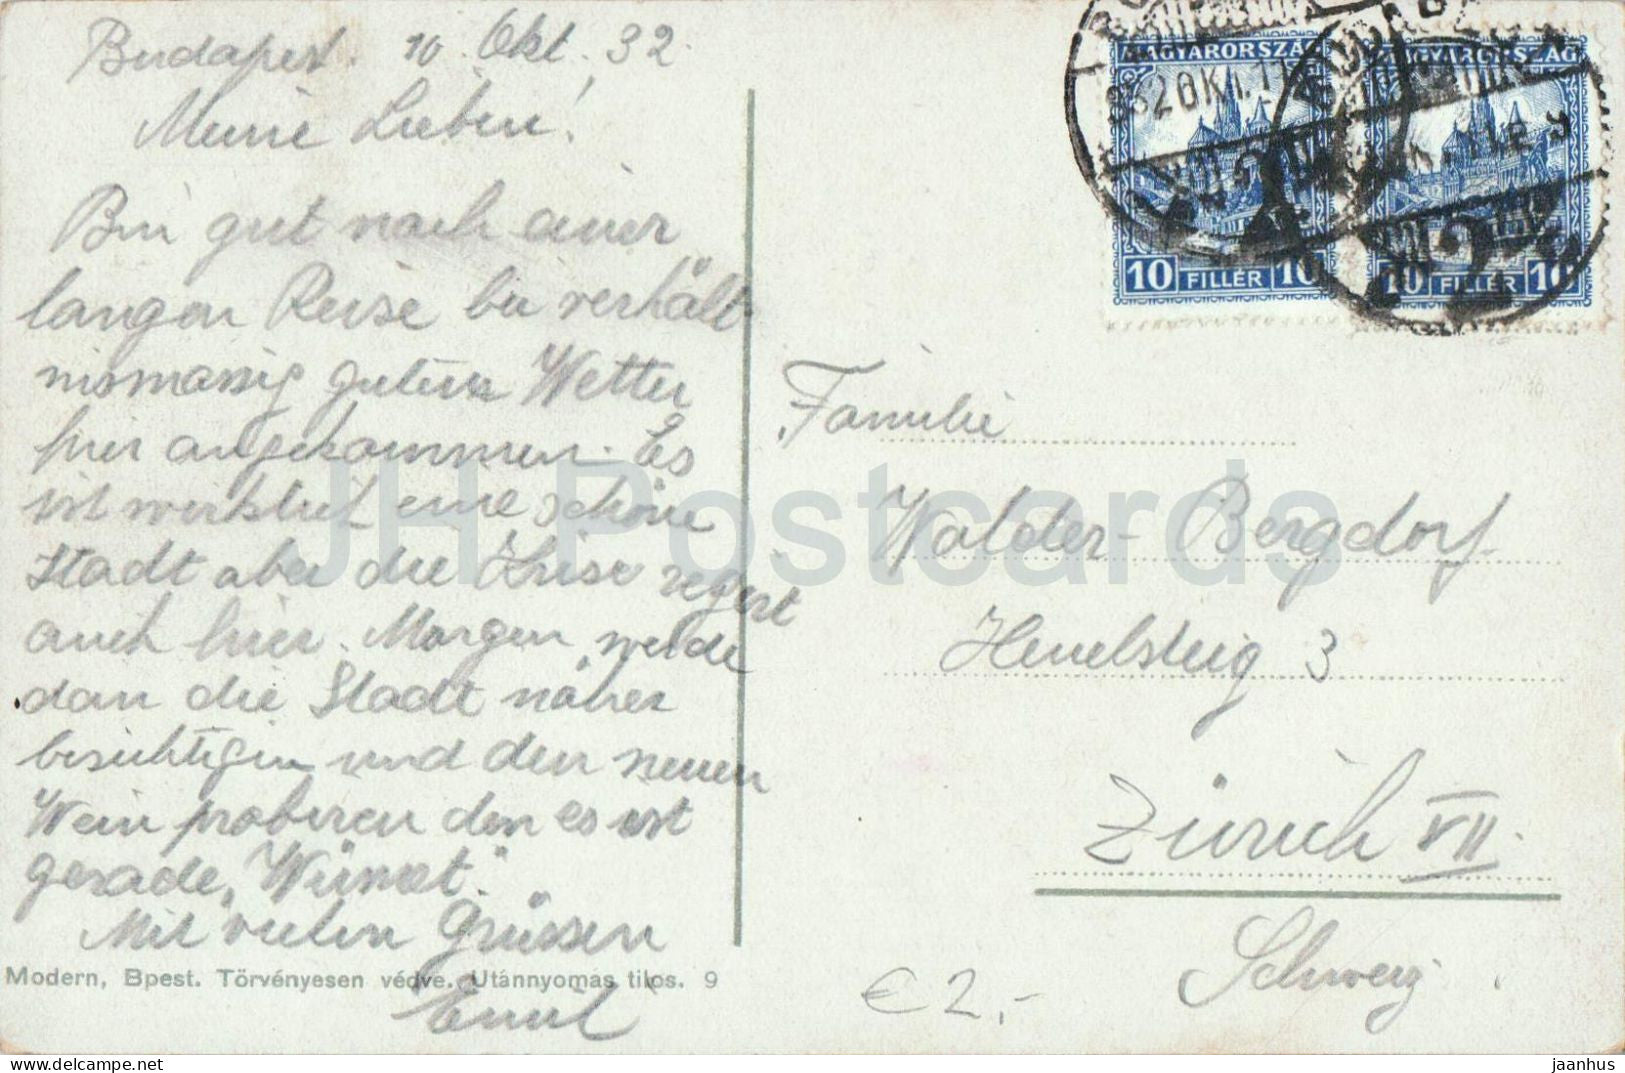 Budapest. 10. Okt. 32.
Meine Lieben!
Bin gut nach einer
langen Reise bei verhält-
nismässig gutem Wetter
hier angekommen. Es
ist wirklich eine schöne
Stadt aber die Krise regiert
auch hier. Morgen werde
dan die Stadt näher
besichtigen und den neuen
Wein probieren den es ist
gerade, "Wümet".
Mit vielen Grüssen
Emil
Modern, Bpest. Törvényesen védve. Utánnyomás tilos. 9
MAGYARORSZÁG
10 FILLÉR 10
MAGYARORSZÁG
10 FILLÉR 10
Familie
Walder-Bergdorf
3
Zürich VII.
Schweiz.
€ 2,-
JH Postcards
delcampe.net
jaanhus